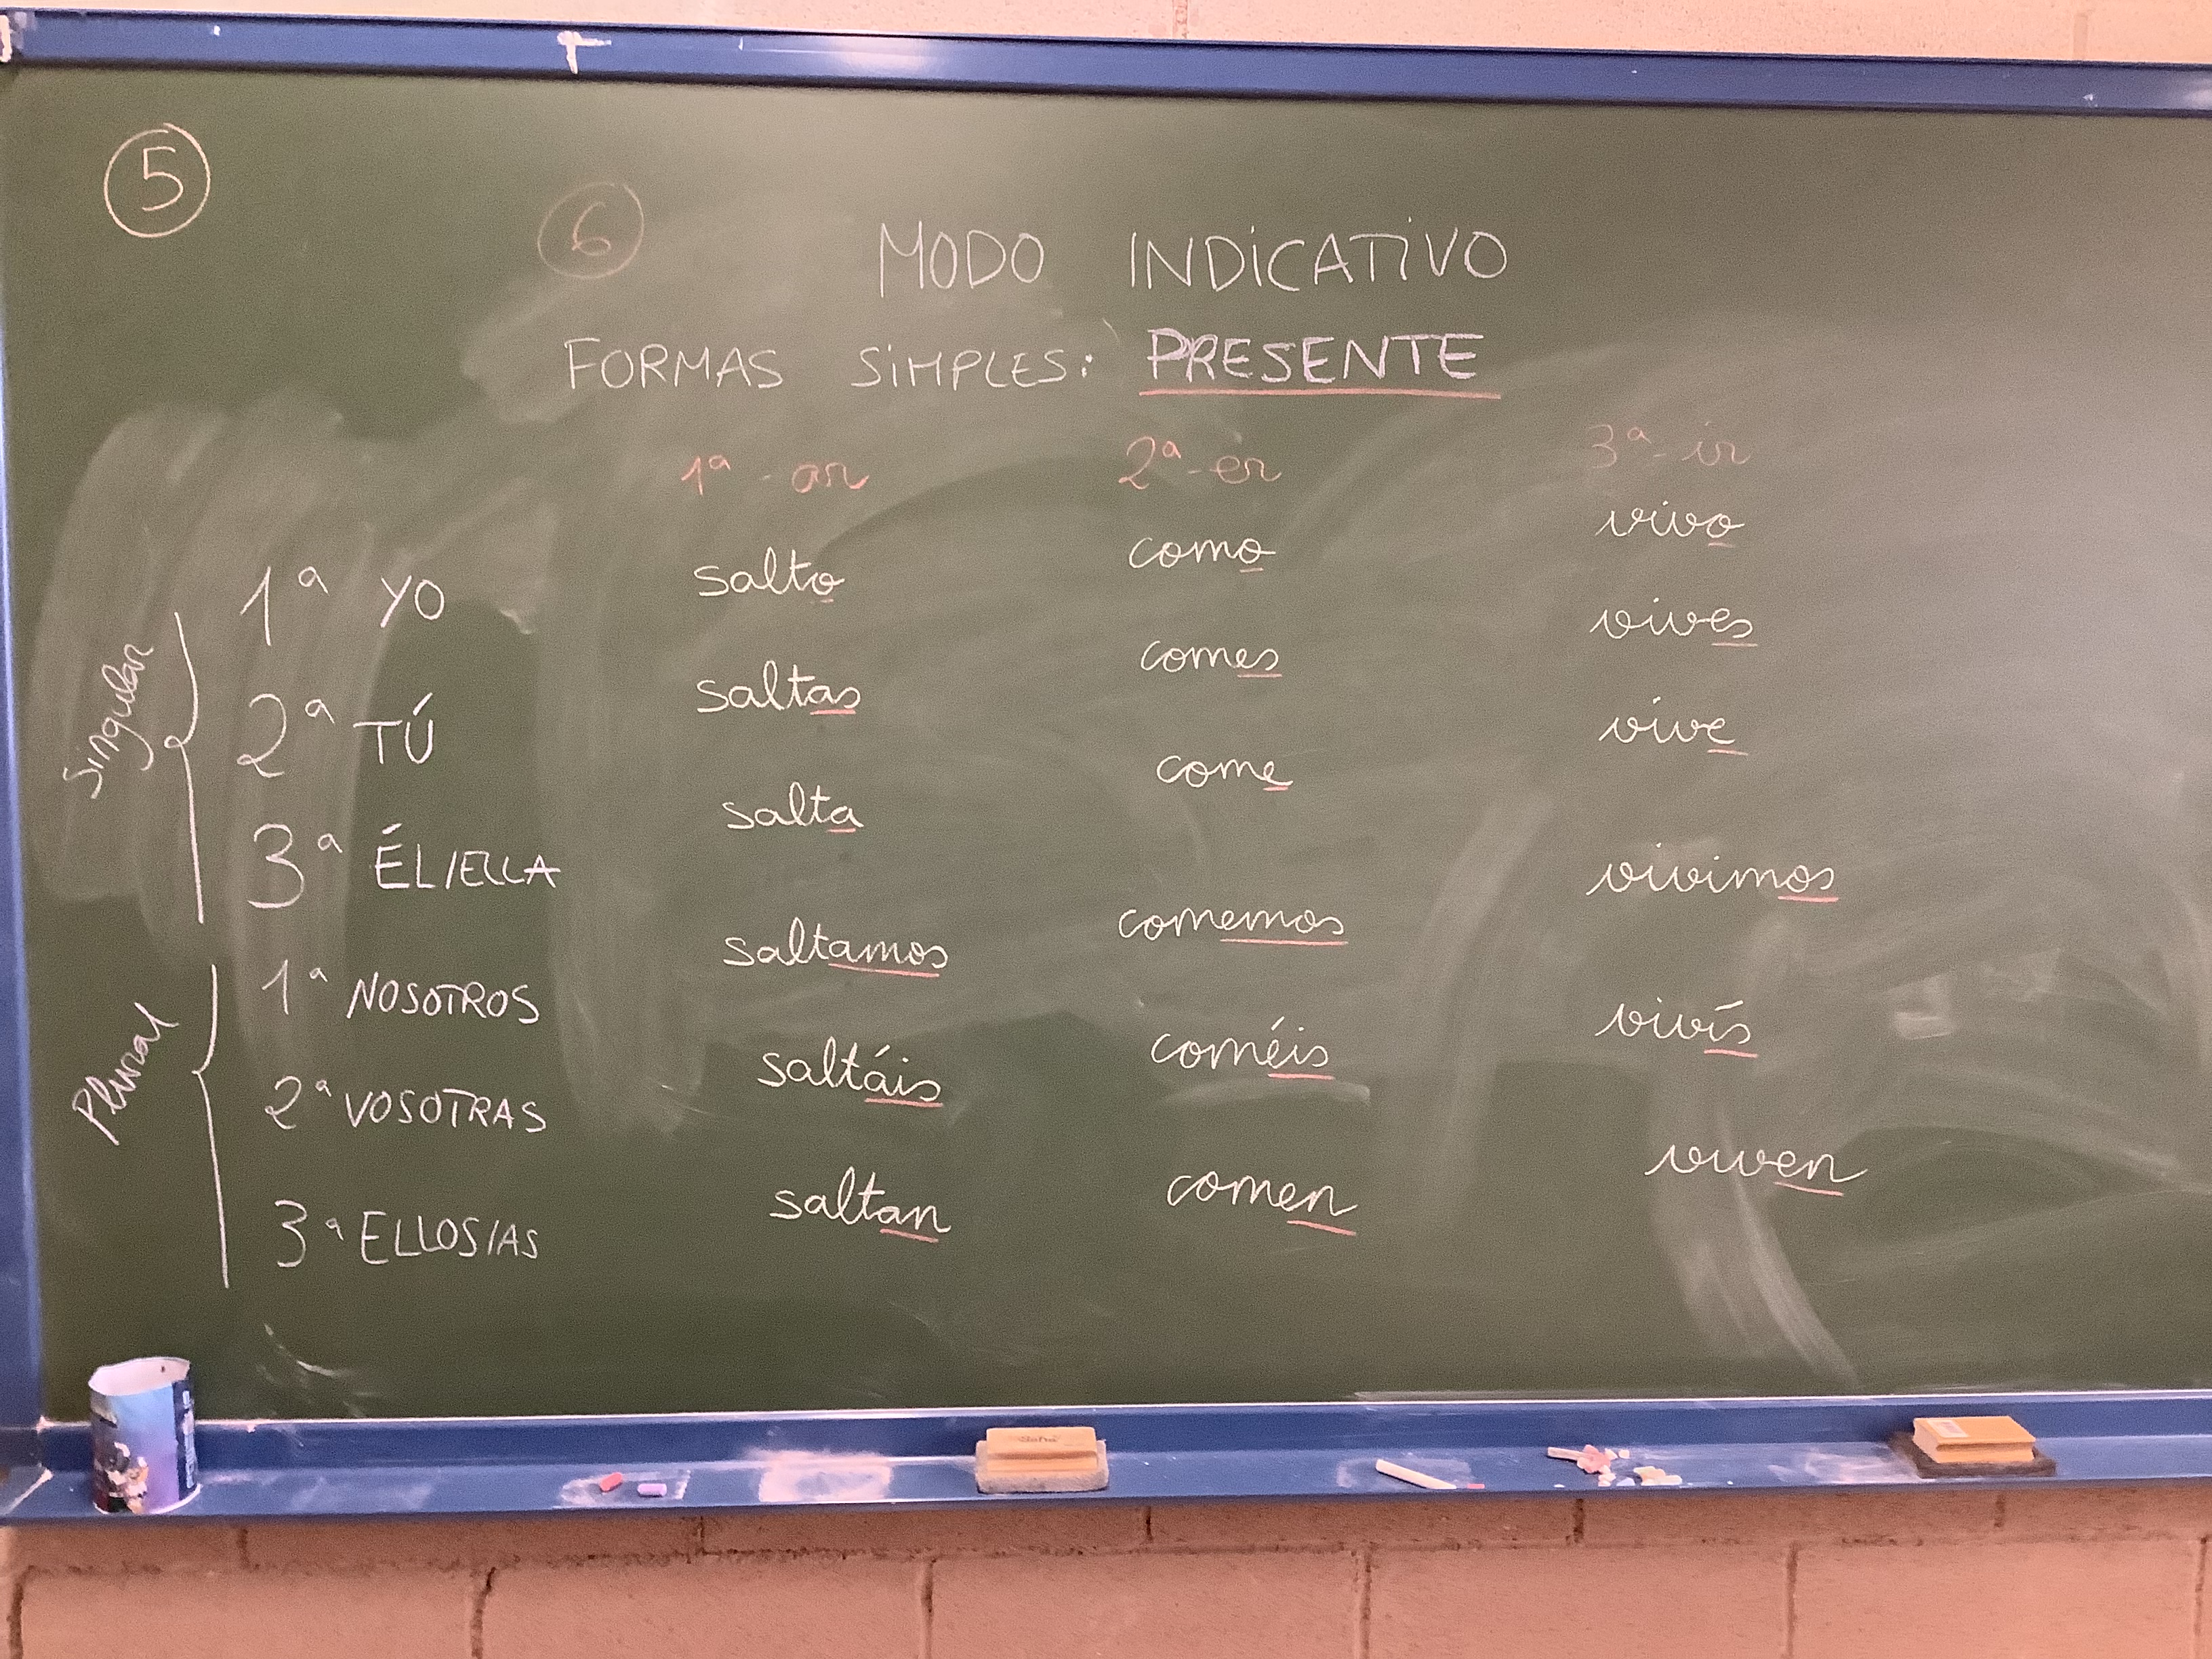 5
6
MODO INDICATIVO
FORMAS SIMPLES: PRESENTE
1ª -ar 2ª -er 3ª -ir
Singular
1ª YO salto como vivo
2ª TÚ saltas comes vives
3ª ÉL/ELLA salta come vive
Plural
1ª NOSOTROS saltamos comemos vivimos
2ª VOSOTRAS saltáis coméis vivís
3ª ELLOS/AS saltan comen viven